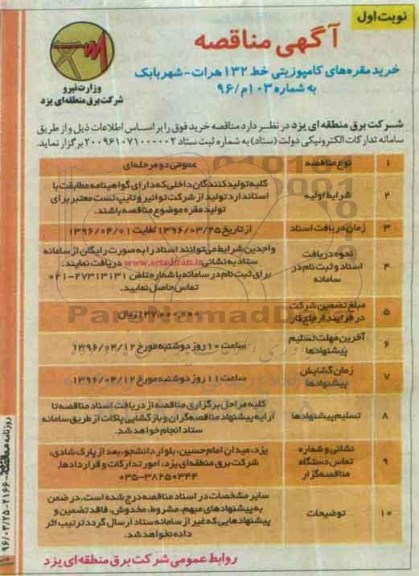 نوبت اول
آگهی مناقصه
خرید مقره‌های کامپوزیتی خط ۱۳۲ هرات-شهربابک
به شماره ۱۰۳م/۹۶
وزارت نیرو
شرکت برق منطقه‌ای یزد
شرکت برق منطقه‌ای یزد در نظر دارد مناقصه خرید فوق را بر اساس اطلاعات ذیل و از طریق
سامانه تدارکات الکترونیکی دولت (ستاد) به شماره ثبت ستاد ۲۰۰۹۶۱۰۷۱۰۰۰۰۰۲ برگزار نماید.
۱ نوع مناقصه عمومی دو مرحله‌ای
۲ شرایط اولیه کلیه تولیدکنندگان داخلی که دارای گواهینامه مطابقت با
استاندارد تولید از شرکت توانیر و تایپ تست معتبر برای
تولید مقره موضوع مناقصه باشند.
۳ زمان دریافت اسناد از تاریخ ۱۳۹۶/۰۳/۲۵ لغایت ۱۳۹۶/۰۴/۰۱
۴ نحوه دریافت اسناد و ثبت نام در سامانه واجدین شرایط می‌توانند اسناد را به صورت رایگان از سامانه
ستاد به نشانی www.setadiran.ir دریافت نمایند.
برای ثبت نام در سامانه با شماره تلفن ۲۷۳۱۳۱۳۱-۰۲۱
تماس حاصل نمایید.
۵ مبلغ تضمین شرکت در فرآیند ارجاع کار ریال
۶ آخرین مهلت تسلیم پیشنهادها ساعت ۱۰ روز دوشنبه مورخ ۱۳۹۶/۰۴/۱۲
۷ زمان گشایش پیشنهادها ساعت ۱۱ روز دوشنبه مورخ ۱۳۹۶/۰۴/۱۲
۸ تسلیم پیشنهادها کلیه مراحل برگزاری مناقصه از دریافت اسناد مناقصه تا
ارایه پیشنهاد مناقصه‌گران و بازگشایی پاکات از طریق سامانه
ستاد انجام خواهد شد.
۹ نشانی و شماره تماس دستگاه مناقصه‌گزار یزد، میدان امام حسین، بلوار دانشجو، بعد از پارک شادی،
شرکت برق منطقه‌ای یزد، امور تدارکات و قراردادها.
۰۳۵-۳۸۲۵۰۳۴۴
۱۰ توضیحات سایر مشخصات در اسناد مناقصه درج شده است، در ضمن
به پیشنهادهای مبهم، مشروط، مخدوش، فاقد تضمین و
پیشنهادهایی که غیر از سامانه ستاد ارسال گردد ترتیب اثر
داده نخواهد شد.
روابط عمومی شرکت برق منطقه‌ای یزد
ParsNamadData
۹۶/۰۳/۲۵-۲۱۶۶